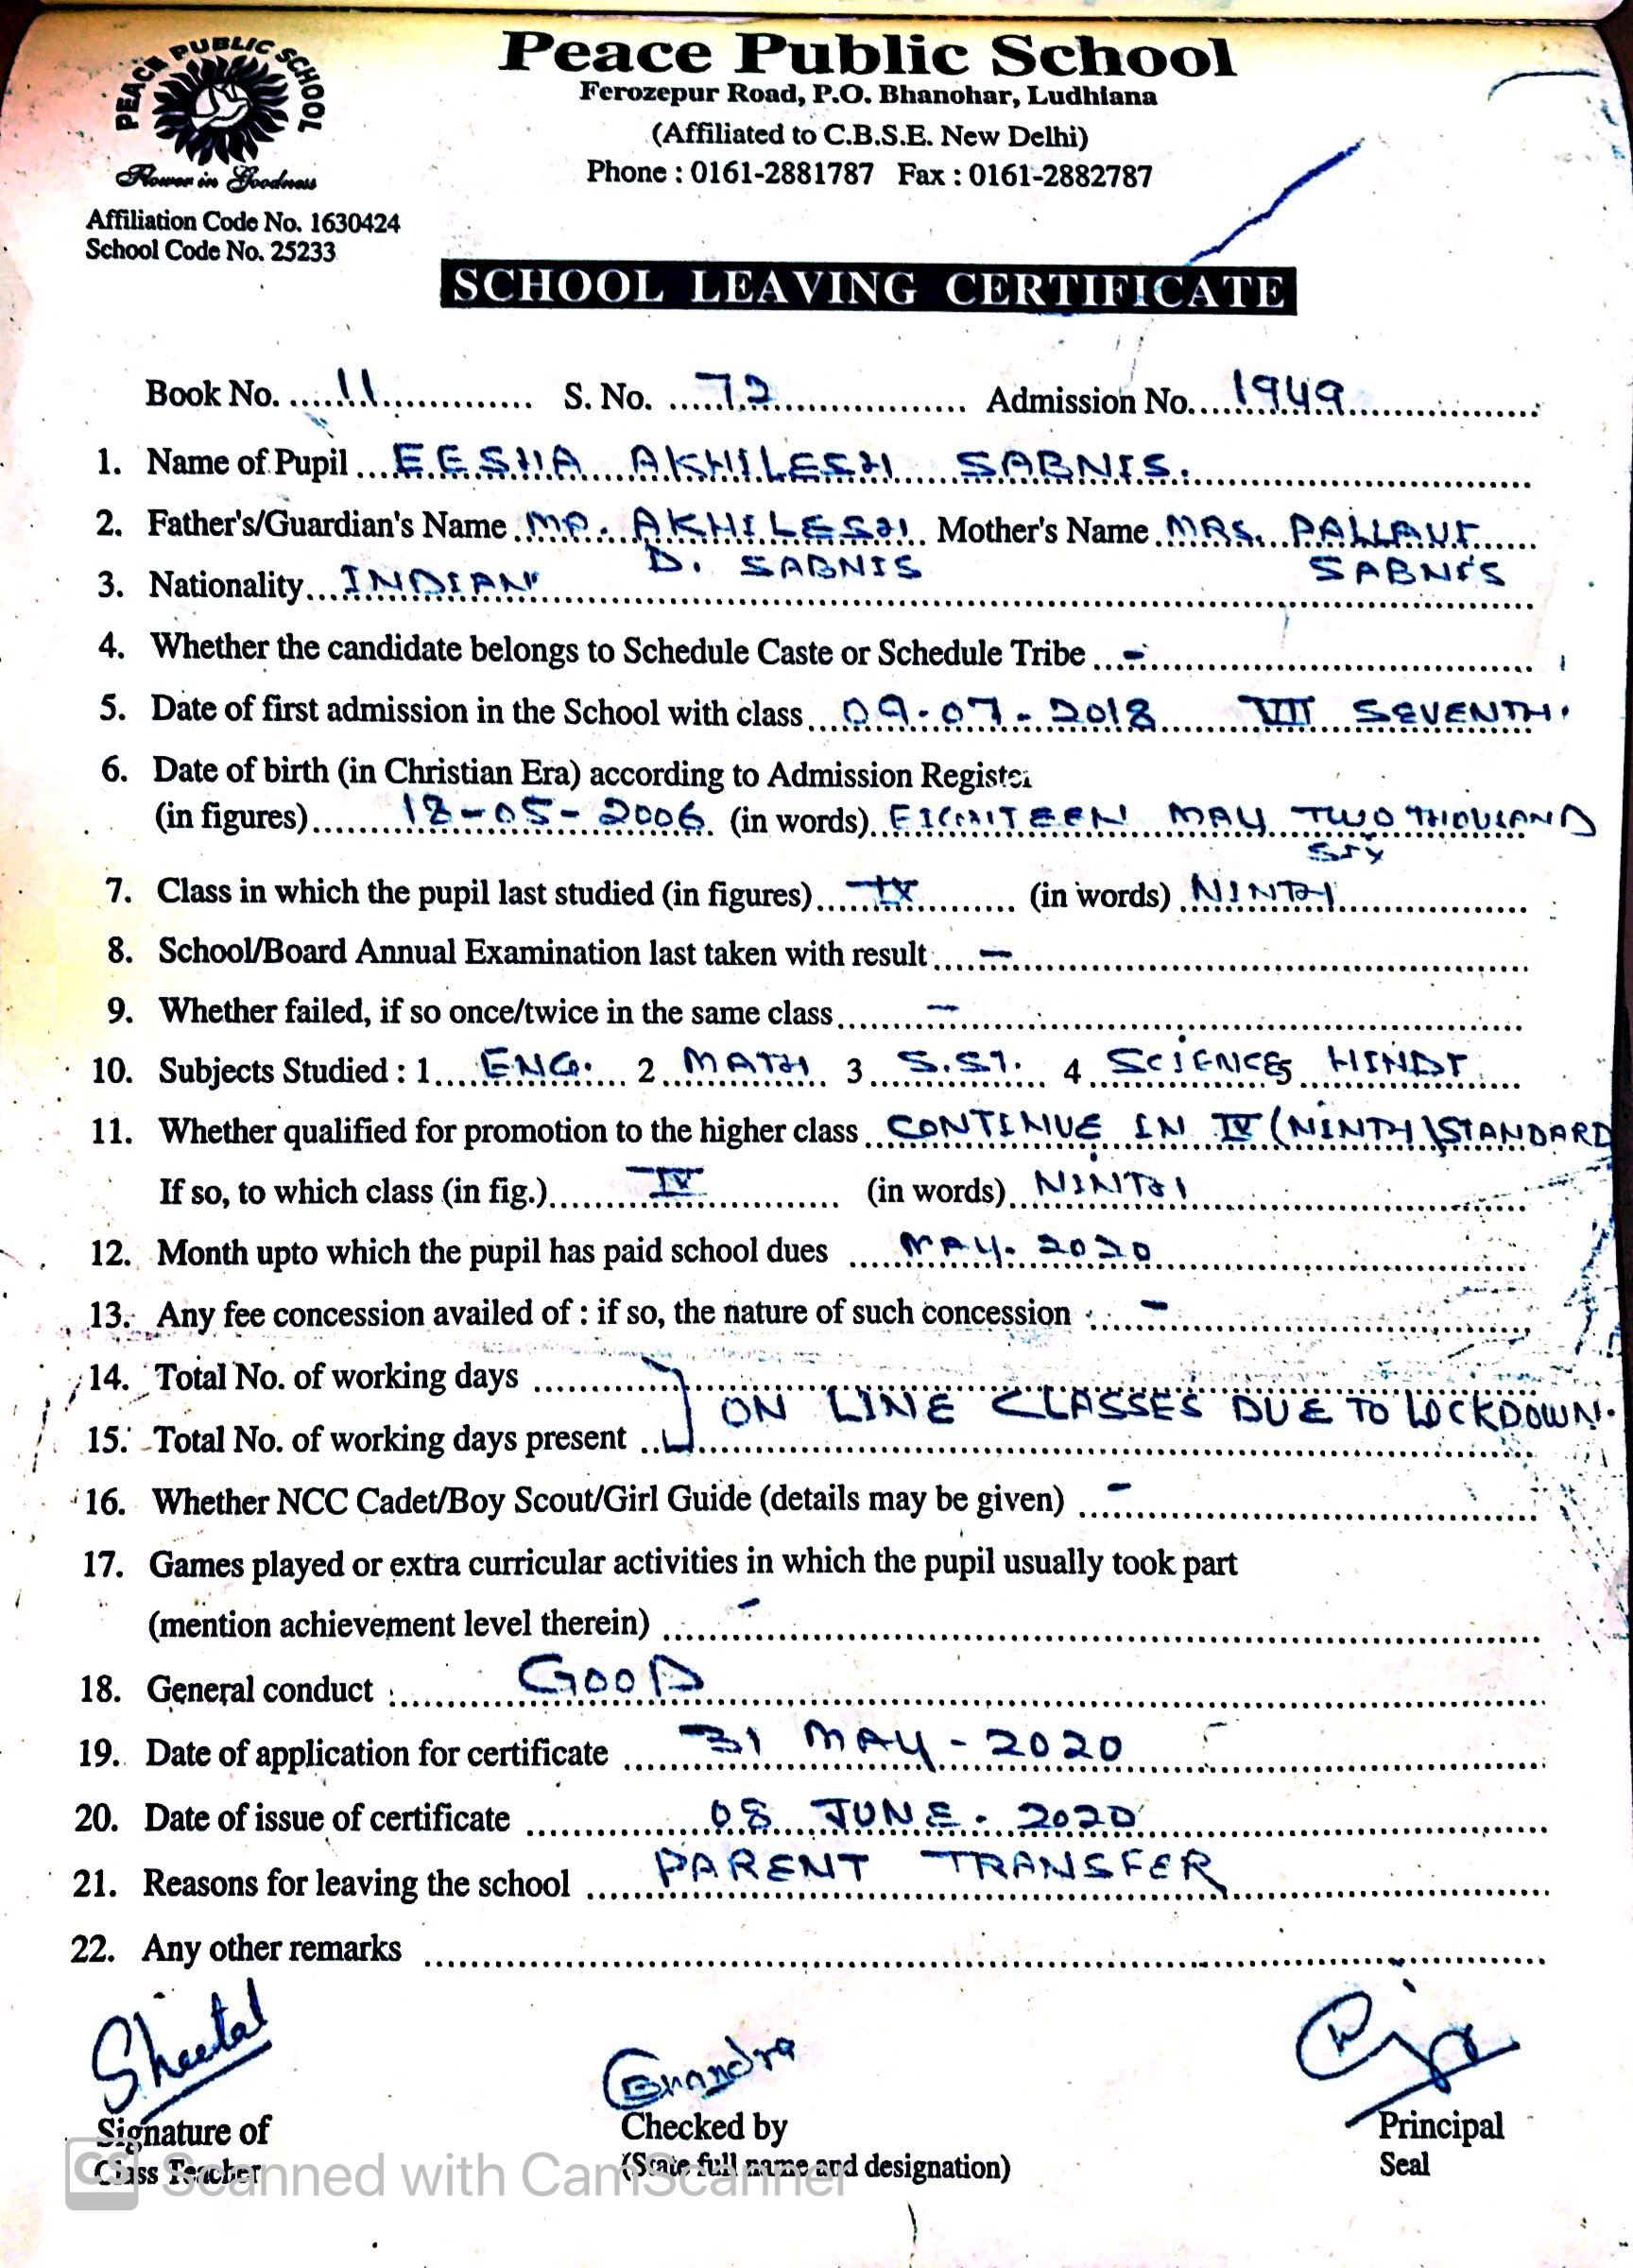 PEACE PUBLIC SCHOOL
Flower in Goodness
Peace Public School
Ferozepur Road, P.O. Bhanohar, Ludhiana
(Affiliated to C.B.S.E. New Delhi)
Phone : 0161-2881787 Fax : 0161-2882787
Affiliation Code No. 1630424
School Code No. 25233
SCHOOL LEAVING CERTIFICATE
Book No. 11 S. No. 72 Admission No. 1949
1. Name of Pupil EESHA AKHILESH SABNIS.
2. Father's/Guardian's Name MR. AKHILESH Mother's Name MRS. PALLAVI
D. SABNIS SABNIS
3. Nationality INDIAN
4. Whether the candidate belongs to Schedule Caste or Schedule Tribe -
5. Date of first admission in the School with class 09-07-2018 VII SEVENTH.
6. Date of birth (in Christian Era) according to Admission Register
(in figures) 18-05-2006 (in words) EIGHTEEN MAY TWO THOUSAND
SIX
7. Class in which the pupil last studied (in figures) IX (in words) NINTH
8. School/Board Annual Examination last taken with result -
9. Whether failed, if so once/twice in the same class -
10. Subjects Studied : 1 ENG. 2 MATH 3 S.ST. 4 SCIENCE 5 HINDI
11. Whether qualified for promotion to the higher class CONTINUE IN IX (NINTH) STANDARD
If so, to which class (in fig.) IX (in words) NINTH
12. Month upto which the pupil has paid school dues MAY. 2020
13. Any fee concession availed of : if so, the nature of such concession -
14. Total No. of working days
ON LINE CLASSES DUE TO LOCKDOWN.
15. Total No. of working days present
16. Whether NCC Cadet/Boy Scout/Girl Guide (details may be given) -
17. Games played or extra curricular activities in which the pupil usually took part
(mention achievement level therein) -
18. General conduct : GOOD
19. Date of application for certificate 31 MAY - 2020
20. Date of issue of certificate 08 JUNE - 2020
21. Reasons for leaving the school PARENT TRANSFER
22. Any other remarks
Sheetal
Signature of Checked by Principal
Class Teacher (State full name and designation) Seal
CS Scanned with CamScanner